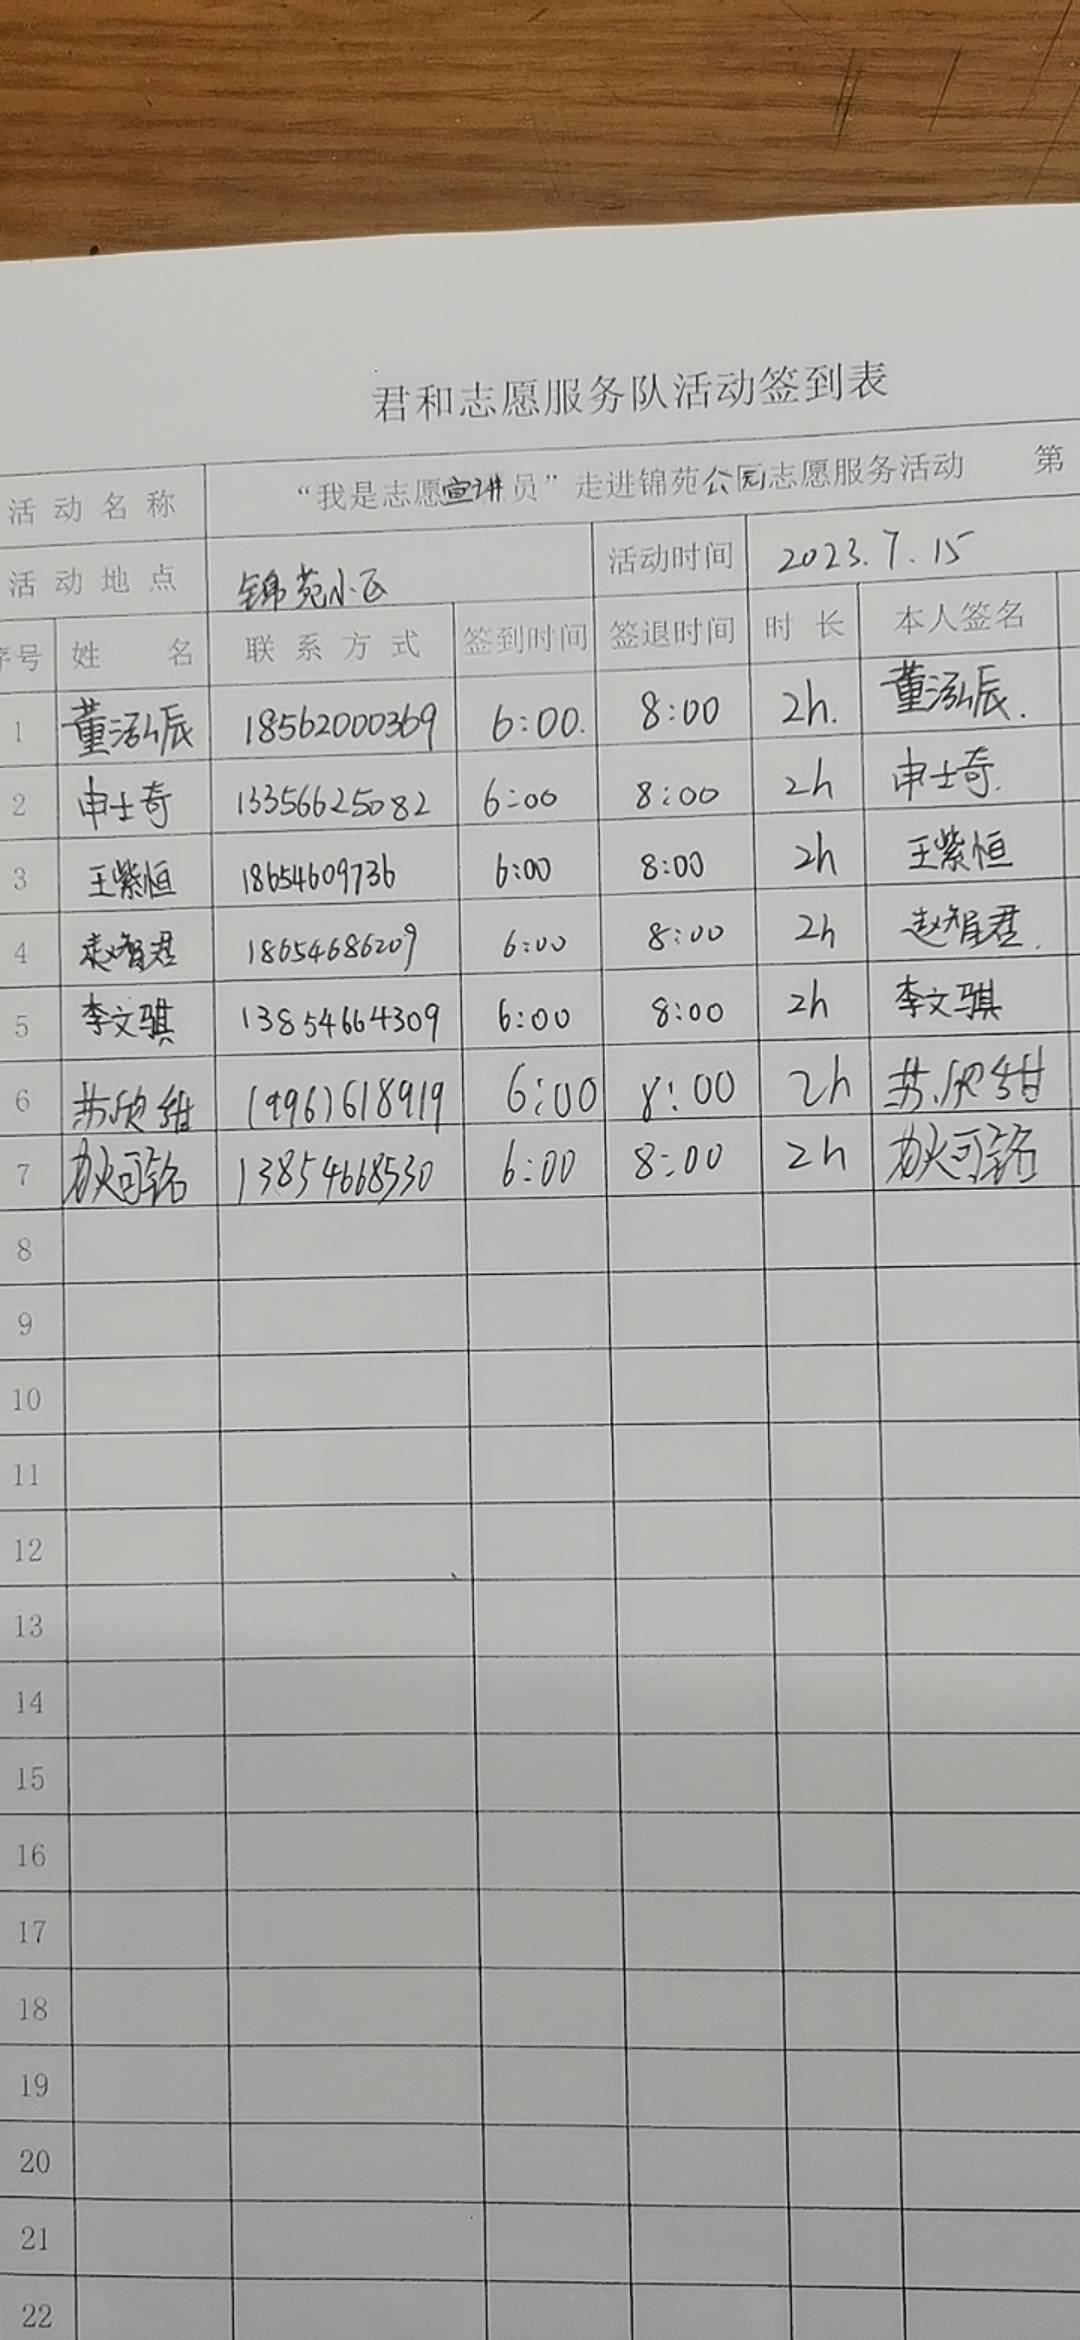 君和志愿服务队活动签到表
活动名称 “我是志愿宣讲员”走进锦苑公园志愿服务活动 第
活动地点 锦苑小区 活动时间 2023.7.15
序号 姓名 联系方式 签到时间 签退时间 时长 本人签名
1 董泓辰 18562000369 6:00. 8:00 2h. 董泓辰.
2 申士奇 13356625082 6:00 8:00 2h 申士奇.
3 王紫恒 18654609736 6:00 8:00 2h 王紫恒
4 赵智君 18654686209 6:00 8:00 2h 赵智君.
5 李文骐 13854664309 6:00 8:00 2h 李文骐
6 苏欣甜 6:00 8:00 2h 苏欣甜
7 13854668530 6:00 8:00 2h
8
9
10
11
12
13
14
15
16
17
18
19
20
21
22